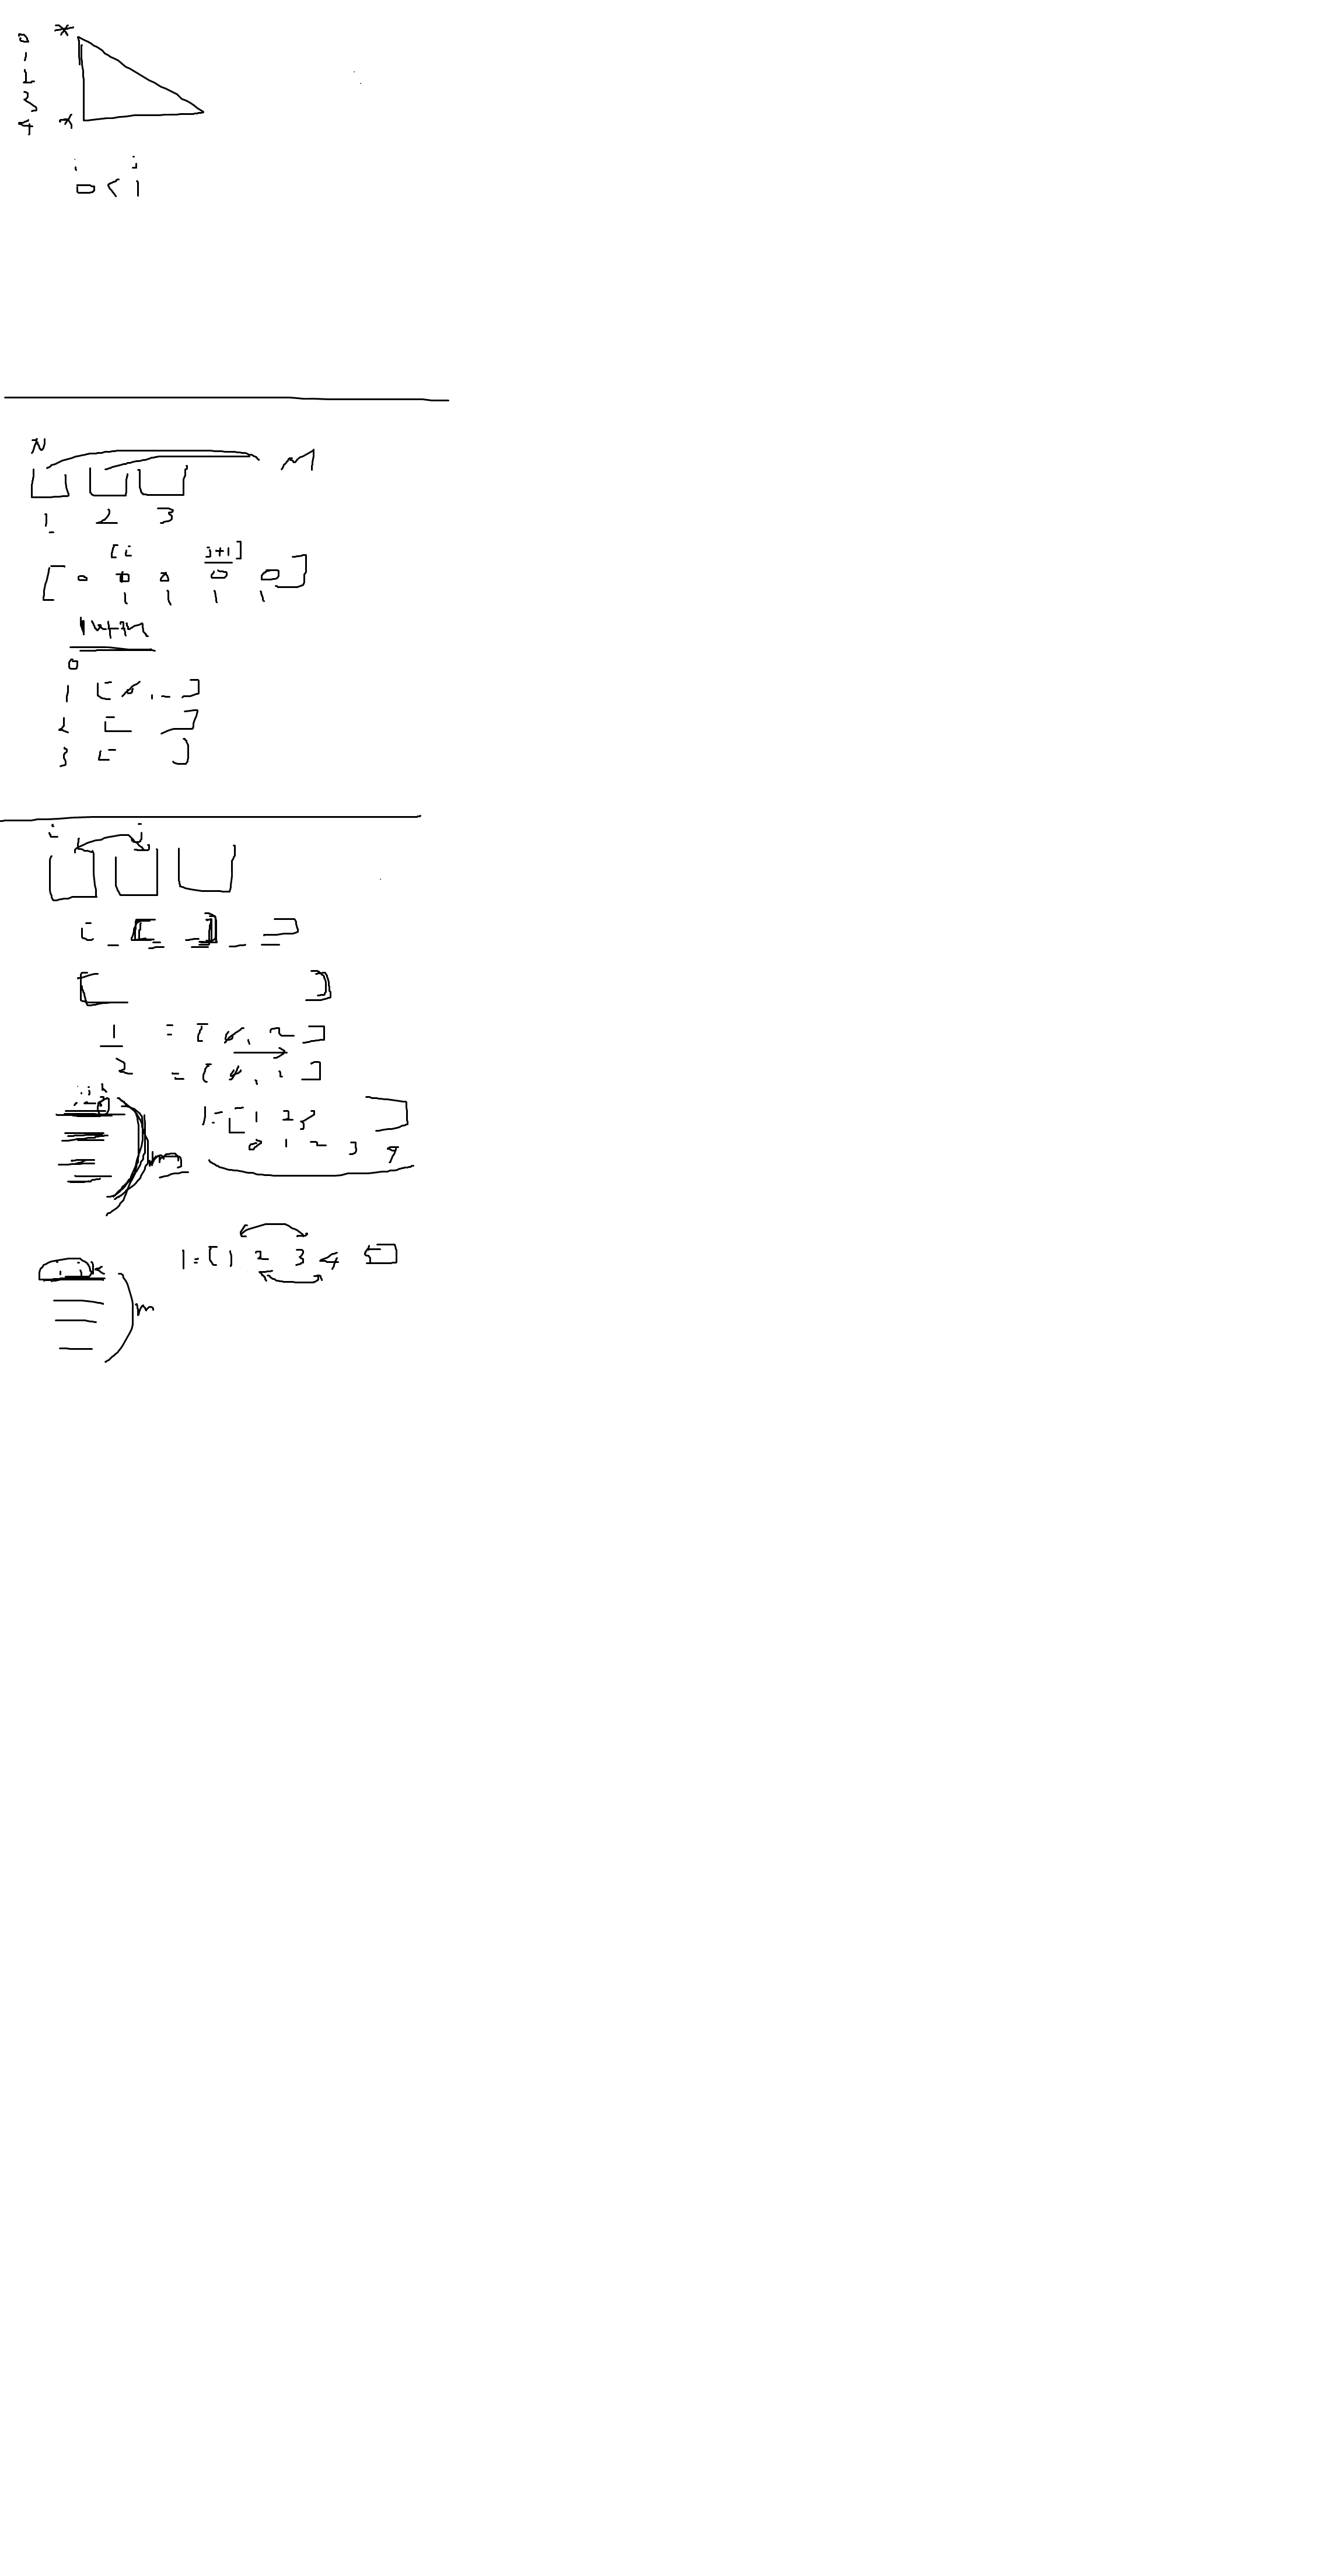 0 *
1
2
3
4 *
i j
0 < 1
N M
1 2 3
[i j+1]
[ 0 0 0 0 0 ]
1 1 1 1
0
1 [ , ]
2 [ ]
3 [ ]
i j
[ ]
[ ]
1 = [ , 2 ]
2 = [ , 1 ]
1 = [ 1 2 3 ]
0 1 2 3 4
m
1 = [ 1 2 3 4 5 ]
i j k
m